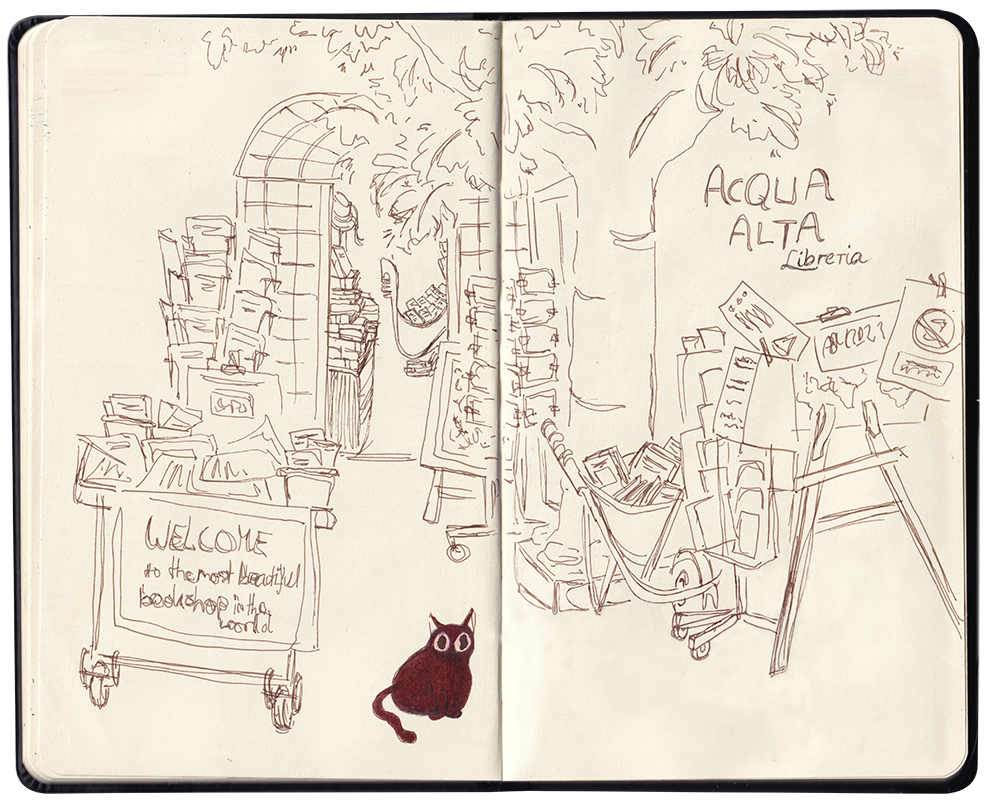 WELCOME
to the most beautiful
bookshop in the
world
ACQUA
ALTA
Libreria